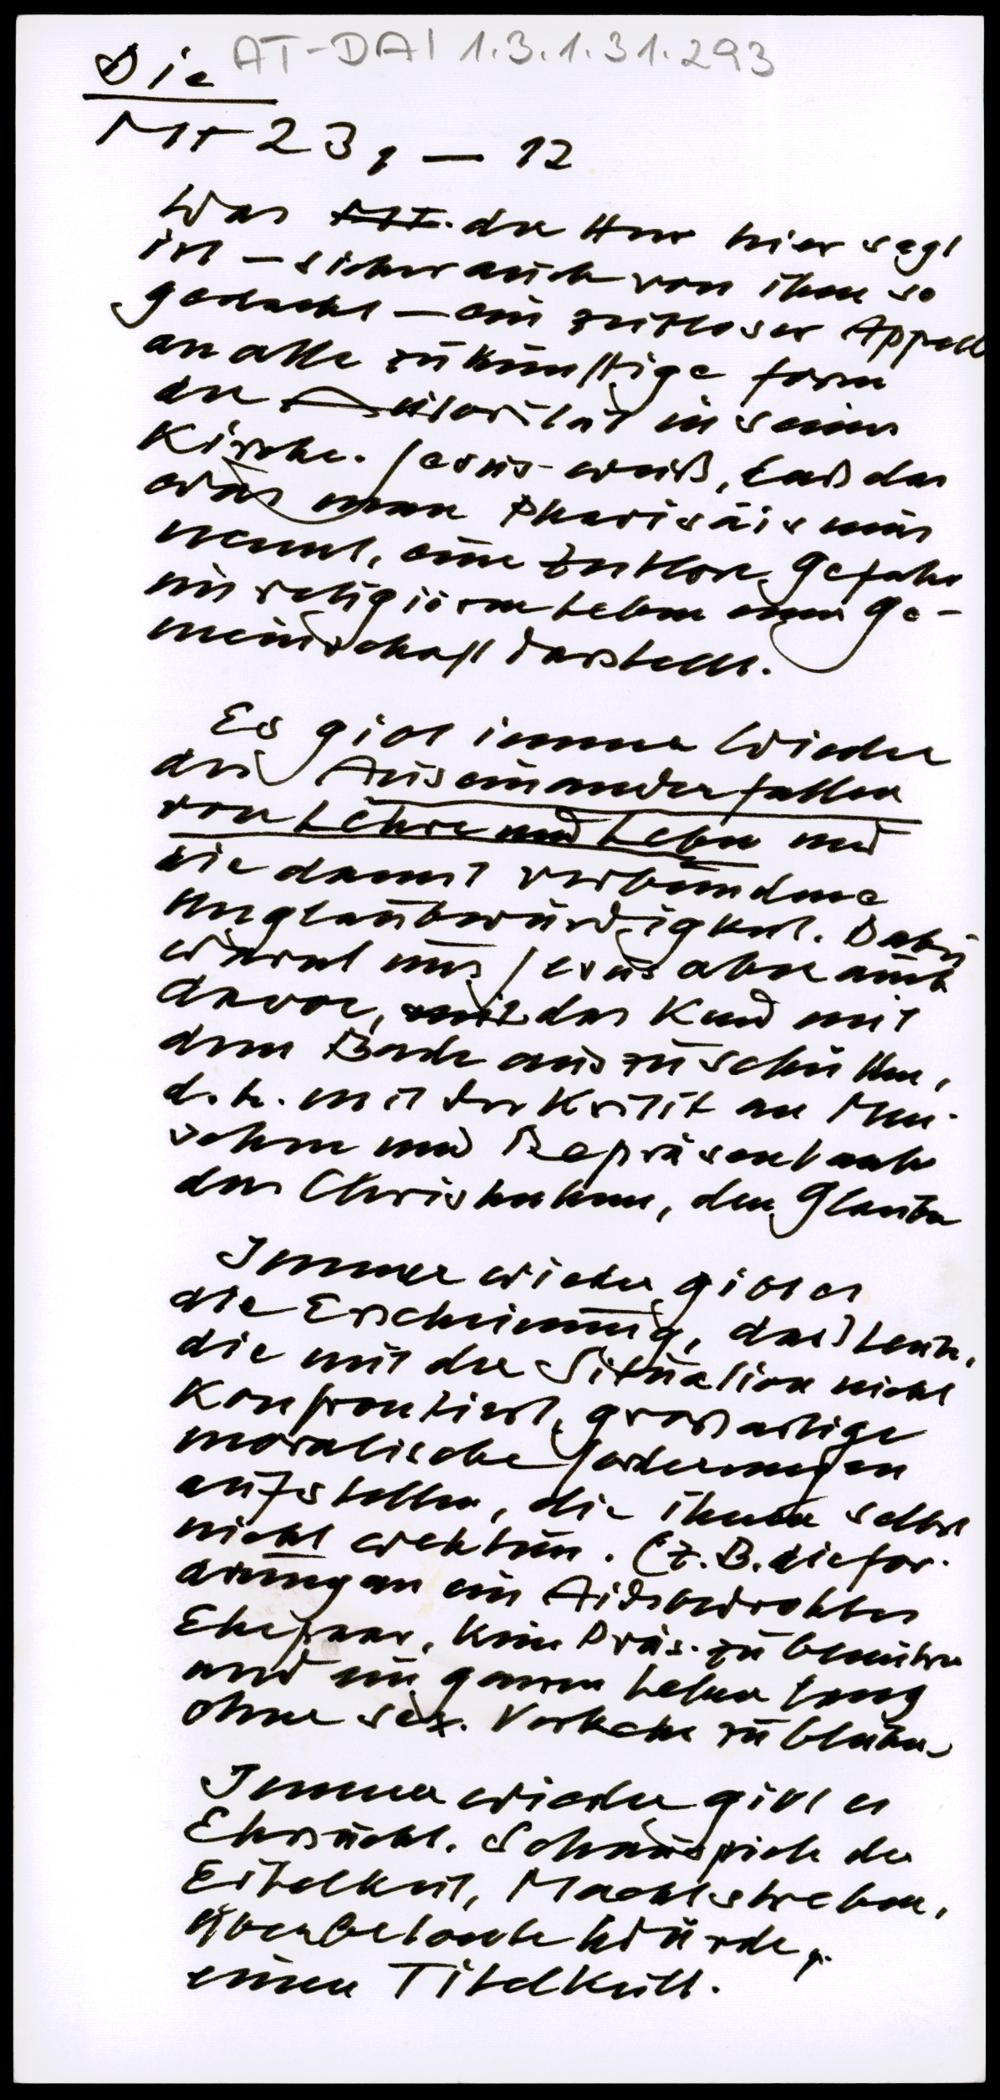 AT-DAI 1.3.1.31.293
Die
Mt 23, 1 — 12
Was Mt. der Herr hier sagt
ist — sicher auch von ihm so
gedacht — ein zeitloser Appell
an alle zukünftige form
der Autorität in seiner
Kirche. Jesus weiß, daß das
was man Pharisäismus
nennt, eine zeitlose Gefahr
im religiösen Leben einer Ge-
meinschaft darstellt.
Es gibt immer wieder
das Auseinanderfallen
von Lehre und Leben und
die damit verbundene
Unglaubwürdigkeit. Dabei
warnt uns Jesus aber auch
davor, mit das Kind mit
dem Bade auszuschütten,
d.h. mit der Kritik an Men-
schen und Repräsentanten
des Christentums, den Glauben
Immer wieder gibt es
die Erscheinung, dass Leute,
die mit der Situation nicht
konfrontiert, großartige
moralische forderungen
aufstellen, die ihnen selbst
nicht wehtun. (z.B. die for-
derung an ein Aidsbedrohtes
Ehepaar, kein Präs. zu benützen
und ein ganzes Leben lang
ohne sex. Verkehr zu bleiben
Immer wieder gibt es
Ehrsucht. Schauspiele der
Eitelkeit, Machtstreben,
überbetonte Würde,
einen Titelkult.